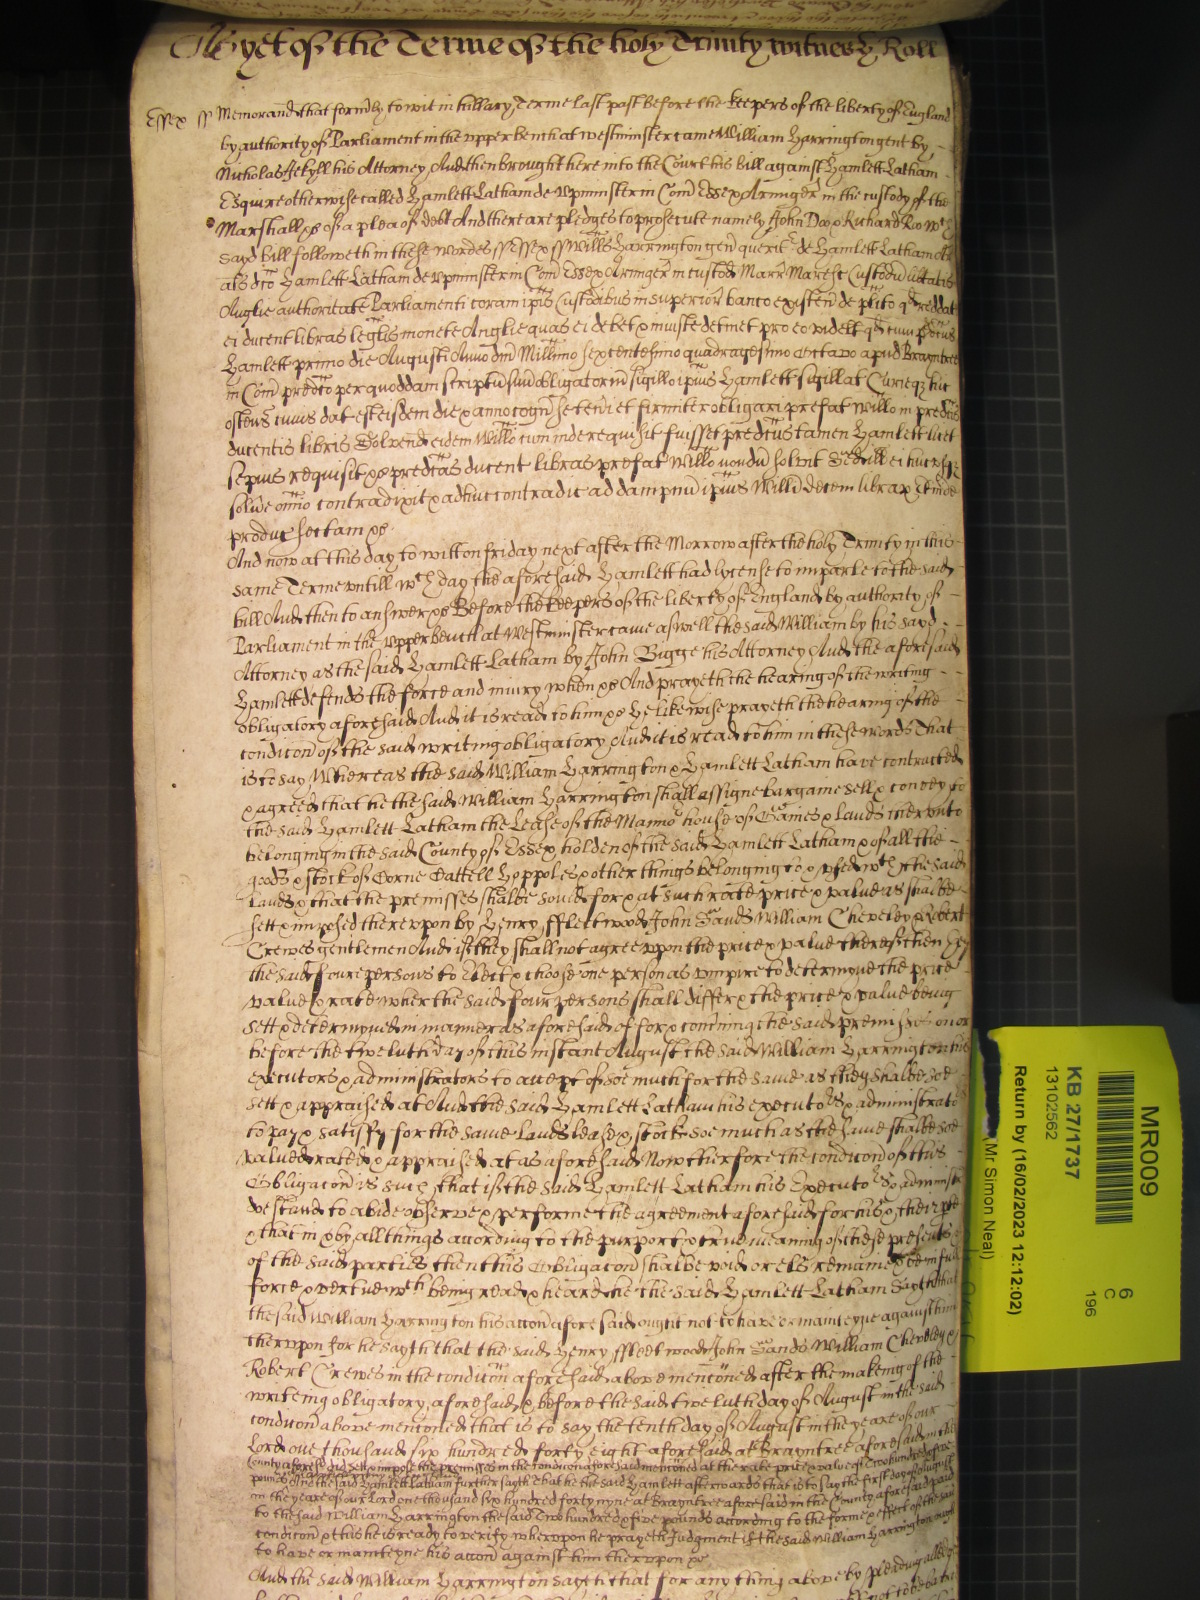 Yet of the Terme of the holy Trinity witnes H Roll
Essex ss Memorand that formly to wit in hillary Terme last past before the keepers of the liberty of England
by authority of Parliament in the upper bench at westminster came William Harrington gent by
Nicholas Jekyll his Attorney And then brought here into the Court his bill against Hamlett Latham
Esquire otherwise called Hamlett Latham de Upminster in Com Essex Armiger in the custody of the
Marshall &c of a plea of debt And there are pledges to prosecute namely John Doo & Richard Roo wch
sayd bill followeth in these wordes ss Essex ss Willus Harrington gen querit de Hamlett Latham
als dco Hamlett Latham de Upminster in Com Essex Armiger in custod Marr Maresc Custodu libtatis
Anglie authoritate Parliamenti coram ipis Custodibus in superior banco existen de plito qd reddat
ei ducent libras leglis monete Anglie quas ei debet & iniuste detinet pro eo videlt qd cum pdcus
Hamlett primo die Augusti Anno dni Millimo sexcentesimo quadragesimo octavo apud Brayntree
in Com predco per quoddam scriptu suu obligatoriu sigillo ipius Hamlett sigillat Curieq hic
ostens cuius dat est eisdem die & anno cogn se teneri et firmiter obligari prefat Willo in predcis
ducentis libris Solvend eidem Willo cum inde requisit fuisset predcus tamen Hamlett licet
sepius requisit &c predcas ducent libras prefat Willo nondu solvit Sed ill ei huc usq
solve omno contradixit & adhuc contradic ad dampnu ipius Willi decem librar Et inde
produc sectam &c
And now at this day to witt on friday next after the Morrow after the holy Trinity in this
same Terme untill wch day the aforesaid Hamlett had lycense to imparle to the said
bill And then to answer &c Before the keepers of the liberty of England by authority of
Parliament in the upper bench at Westminster came aswell the said William by his sayd
Attorney as the said Hamlett Latham by John Bigge his Attorney And the aforesaid
Hamlett defends the force and iniury when &c And prayeth the hearing of the writing
obligatory aforesaid And it is read to him &c He likewise prayeth the hearing of the
condicon of the said writing obligatory And it is read to him in these words That
is to say Whereas the said William Harrington & Hamlett Latham have contracted
& agreed that he the said William Harrington shall assigne bargaine sell & convey to
the said Hamlett Latham the Lease of the Mannor house of Gaines & lands therunto
belonging in the said County of Essex holden of the said Hamlett Latham & of all the
goods & stock of Corne Cattell Hoppoles & other things belonging to & used wth the said
Lands & that the premisses shalbe sould for & at such rate price & value as shalbe
sett & imposed thereupon by Henry ffleetwood John Sands William Cheveley & Robert
Crewes gentlemen And if they shall not agree upon the price & value therof then
the said foure persons to Elect & choose one person as umpire to determyne the price
value & rate wher the said four persons shall differ & the price & value being
sett & determyned in manner as aforesaid of for & concning the said premisses on or
before the twelveth day of this instant August the said William Harrington his
executors & administrators to accept of soe much for the same as they shalbe soe
sett & appraised at And the said Hamlett Latham his executors & administrators
to pay & satisfy for the same Lands lease & stock soe much as the same shalbe soe
valued rated & appraised at as aforesaid Now therfore the condicon of this
Obligacon is such that if the said Hamlett Latham his Executors & administ
doe stand to abide observe & performe the agreement aforesaid for his & their pte
& that in & by all things according to the purport & true meaning of these presents
of the said parties then this Obligacon shalbe void or els remaine & be in full
force & vertue wch being read & heard he the said Hamlett Latham Sayth that
the said William Harrington his accon aforesaid ought not to have or mainteyne against him
therupon for he sayth that the said Henry ffleetwood John Sands William Cheveley &
Robert Crewes in the condicon aforesaid above menconed after the makeing of the
writeing obligatory aforesaid & before the said twelveth day of August in the said
condicon above menconed that is to say the tenth day of August in the yeare of our
Lord one thousand six hundred forty eight aforesaid at Brayntree aforesaid in the
County aforesd did sett & impose the premisses in the condicon aforesaid menconed at the rate price & value of Two hundred & five
pounds And the said Hamlett Latham further sayth that he the said Hamlett afterwards that is to say the first day of August
in the yeare of our Lord one thousand six hundred forty nyne at Brayntree aforesaid in the County aforesaid paid
to the said William Harrington the said Two hundred & five pounds according to the forme & effect of the said
condicon & this he is ready to verify wherupon he prayeth Judgment if the said William Harrington ought
to have or mainteyne his accon against him therupon &c
And the said William Harrington sayth that for any thing above by pleading alledged
MR009
KB 27/1737
13102562
6
C
196
Return by (16/02/2023 12:12:02)
(Mr Simon Neal)